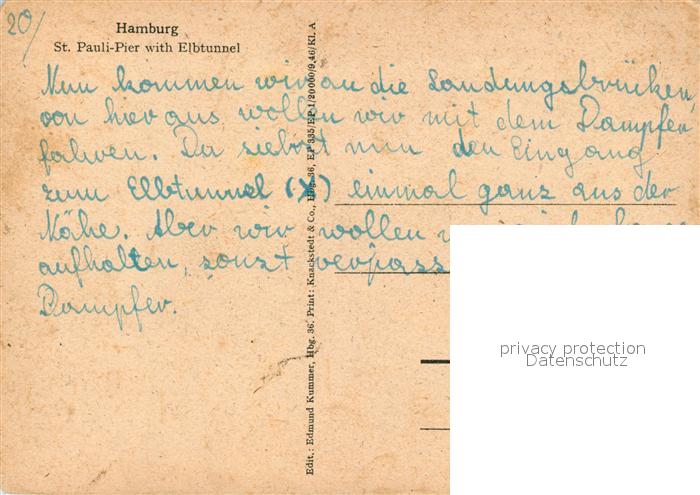 20/
Hamburg
St. Pauli-Pier with Elbtunnel
Nun kommen wir an die Landungsbrücken
von hier aus wollen wir mit dem Dampfer
fahren. Da siehst nun den Eingang
zum Elbtunnel (X) einmal ganz aus der
Nähe. Aber wir wollen
aufhalten, sonst verpass
Dampfer.
Edit.: Edmund Kummer, Hbg. 36. Print: Knackstedt & Co., Hbg. 36, EP 335/EP 1/20000/9.46/Kl. A
privacy protection
Datenschutz